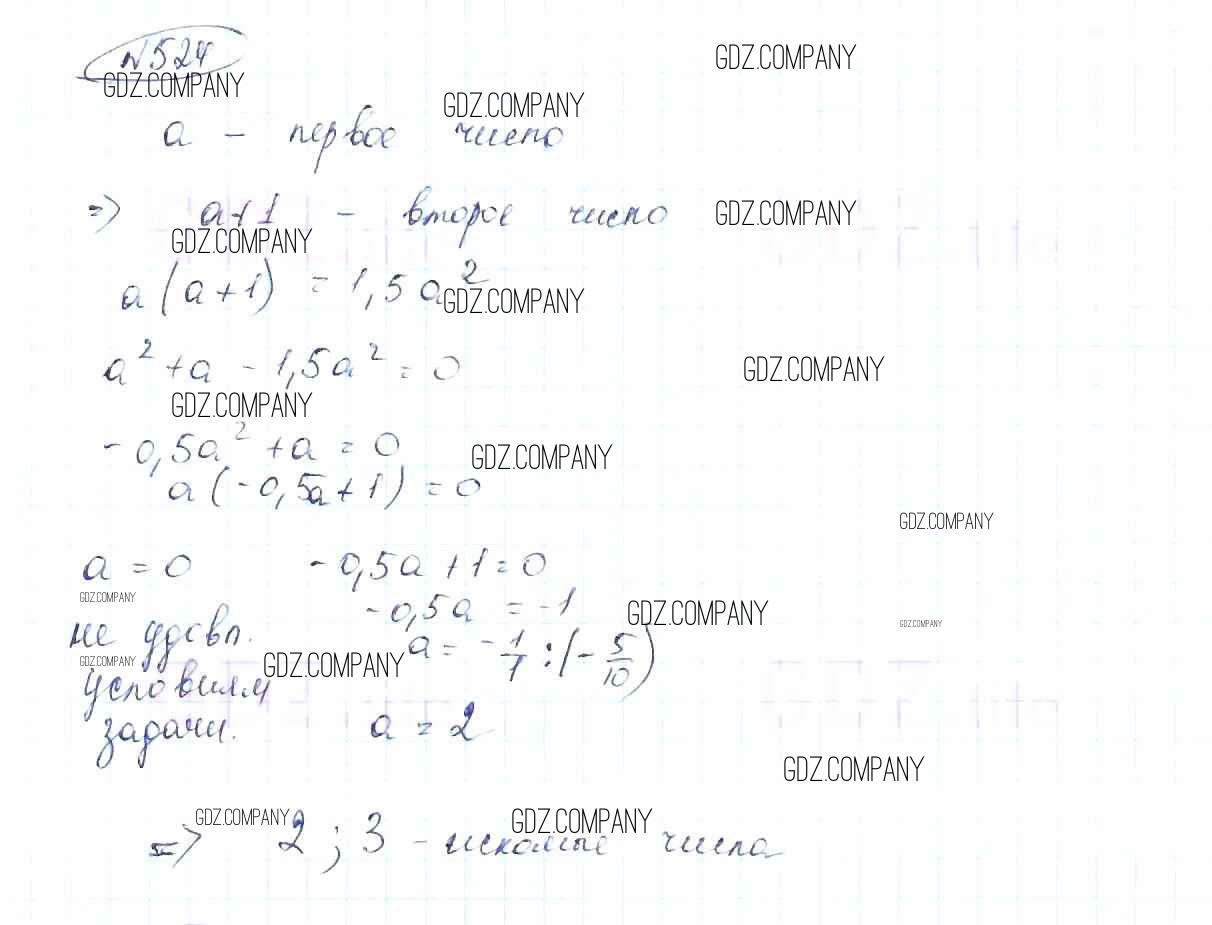 №524
GDZ.COMPANY
GDZ.COMPANY
GDZ.COMPANY
a – первое число
=> a+1 – второе число
GDZ.COMPANY
GDZ.COMPANY
a(a+1) = 1,5a²
GDZ.COMPANY
a² + a - 1,5a² = 0
GDZ.COMPANY
GDZ.COMPANY
-0,5a² + a = 0
GDZ.COMPANY
a(-0,5a+1) = 0
GDZ.COMPANY
a = 0 -0,5a+1=0
GDZ.COMPANY
-0,5a = -1
GDZ.COMPANY
GDZ.COMPANY
не удовл. a = -1/1 : (-5/10)
GDZ.COMPANY
GDZ.COMPANY
условиям
задачи. a = 2
GDZ.COMPANY
GDZ.COMPANY
GDZ.COMPANY
=> 2 ; 3 – искомые числа